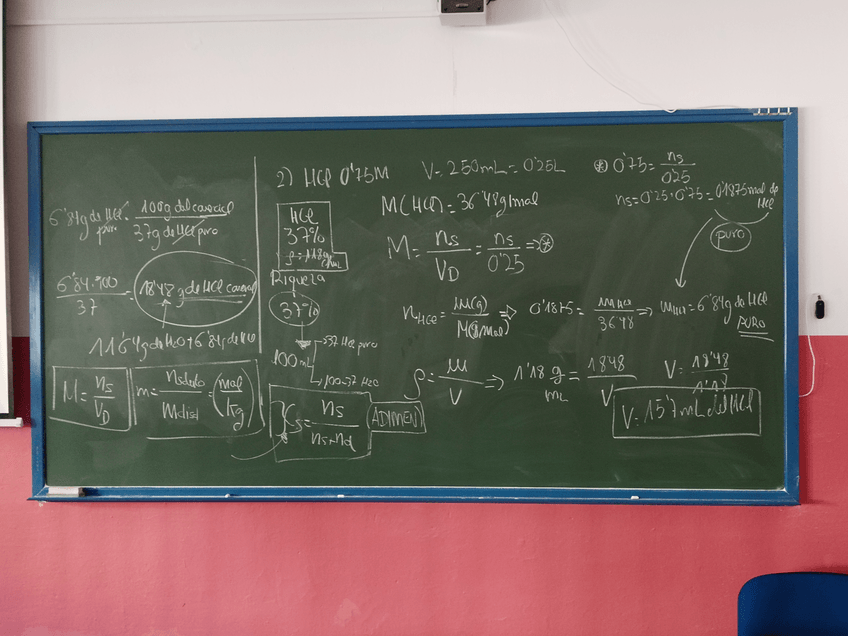 6'84g de HCl puro · 100g del comercial / 37g de HCl puro
6'84·100 / 37 = 18'48 g de HCl comercial
11'64g de H2O + 6'84g de HCl
M = ns / VD
m = nsoluto / Mdisol = (mol / kg)
2) HCl 0'75M V = 250mL = 0'25L
HCl
37%
ρ = 1'18 g/mL
Riqueza
37%
→ 37 HCl puro
100 mL
→ 100-37 H2O
Xs = ns / ns+nd
ADIMEN
M(HCl) = 36'48g/mol
M = ns / VD = ns / 0'25 ⇒ ⊛
nHCl = m(g) / M(g/mol) ⇒ 0'1875 = mHCl / 36'48 ⇒ mHCl = 6'84g de HCl PURO
ρ = m / V ⇒ 1'18 g / mL = 18'48 / V
V = 18'48 / 1'18
V = 15'7mL del HCl
⊛ 0'75 = ns / 0'25
ns = 0'25·0'75 = 0'1875 mol de HCl
puro